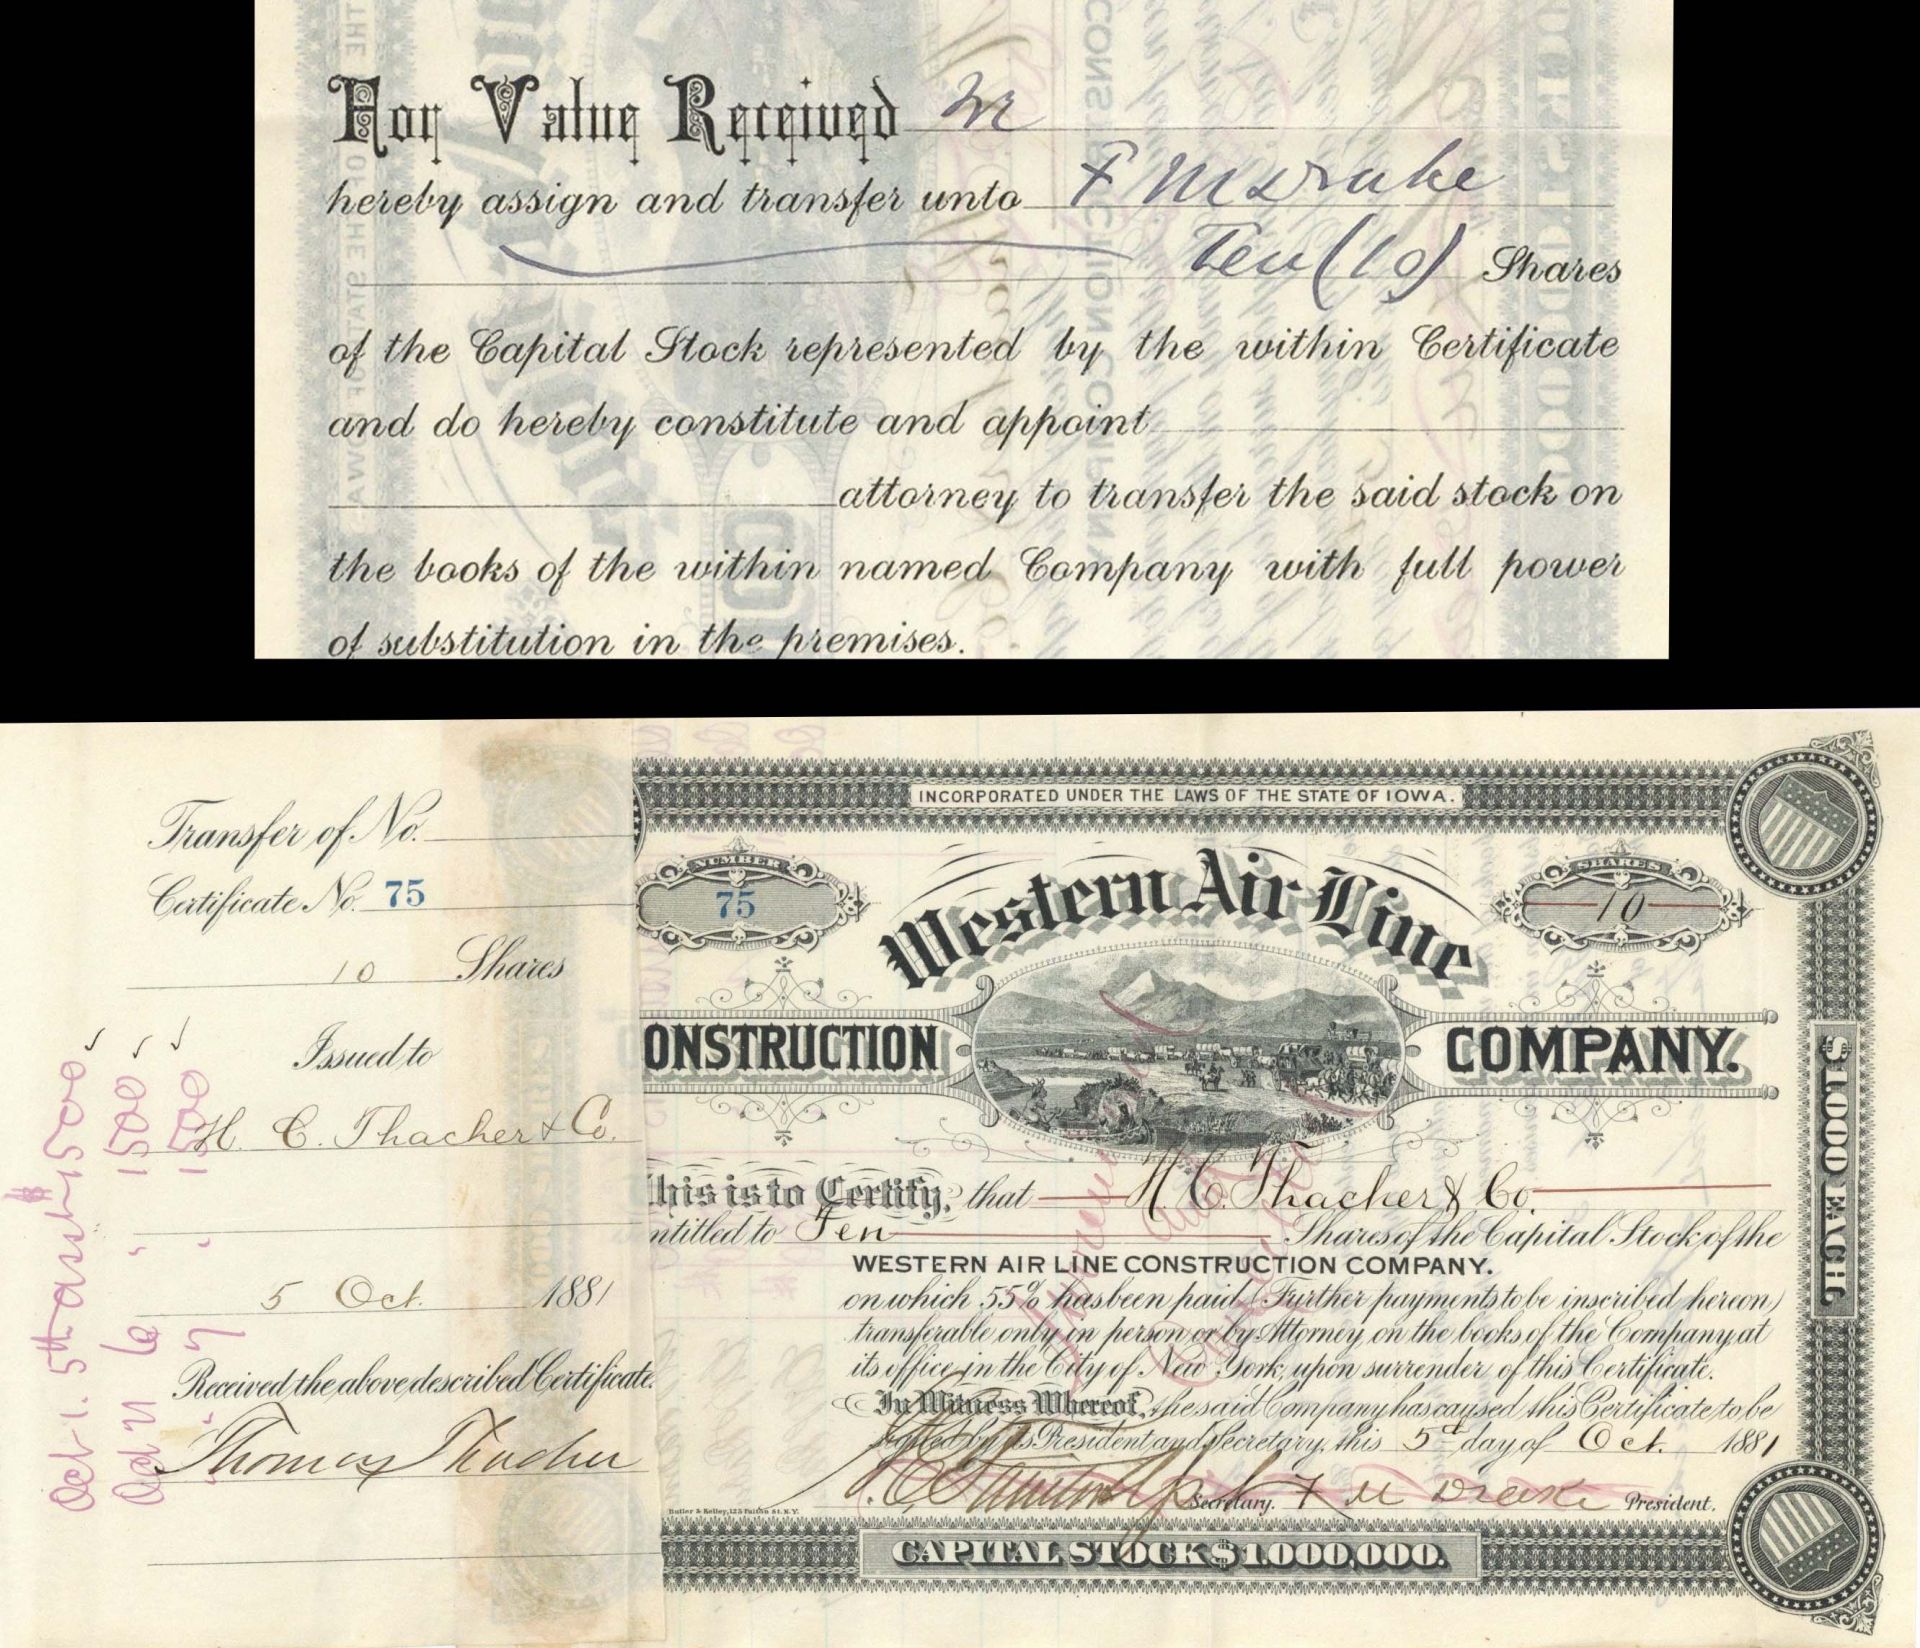 For Value Received We
hereby assign and transfer unto F M Drake
Ten (10) Shares
of the Capital Stock represented by the within Certificate
and do hereby constitute and appoint
attorney to transfer the said stock on
the books of the within named Company with full power
of substitution in the premises.
Transfer of No.
Certificate No. 75
10 Shares
Issued to
H. C. Thacher & Co.
5 Oct. 1881
Received the above described Certificate.
Thomas Thacher
Oct 1. 5th asst $1500
Oct 11 6 " 1500
" " 7 " 1500
INCORPORATED UNDER THE LAWS OF THE STATE OF IOWA.
NUMBER
75
SHARES
10
Western Air Line
ONSTRUCTION COMPANY.
his is to Certify, that H. C. Thacher & Co.
ntitled to Ten Shares of the Capital Stock of the
WESTERN AIR LINE CONSTRUCTION COMPANY.
on which 55% has been paid (Further payments to be inscribed hereon)
transferable only in person or by Attorney, on the books of the Company at
its office in the City of New York, upon surrender of this Certificate.
In Witness Whereof, the said Company has caused this Certificate to be
signed by its President and Secretary, this 5th day of Oct. 1881
Secretary. F M Drake President.
Butler & Kelley, 125 Fulton St. N.Y.
CAPITAL STOCK $1,000,000.
$100 EACH